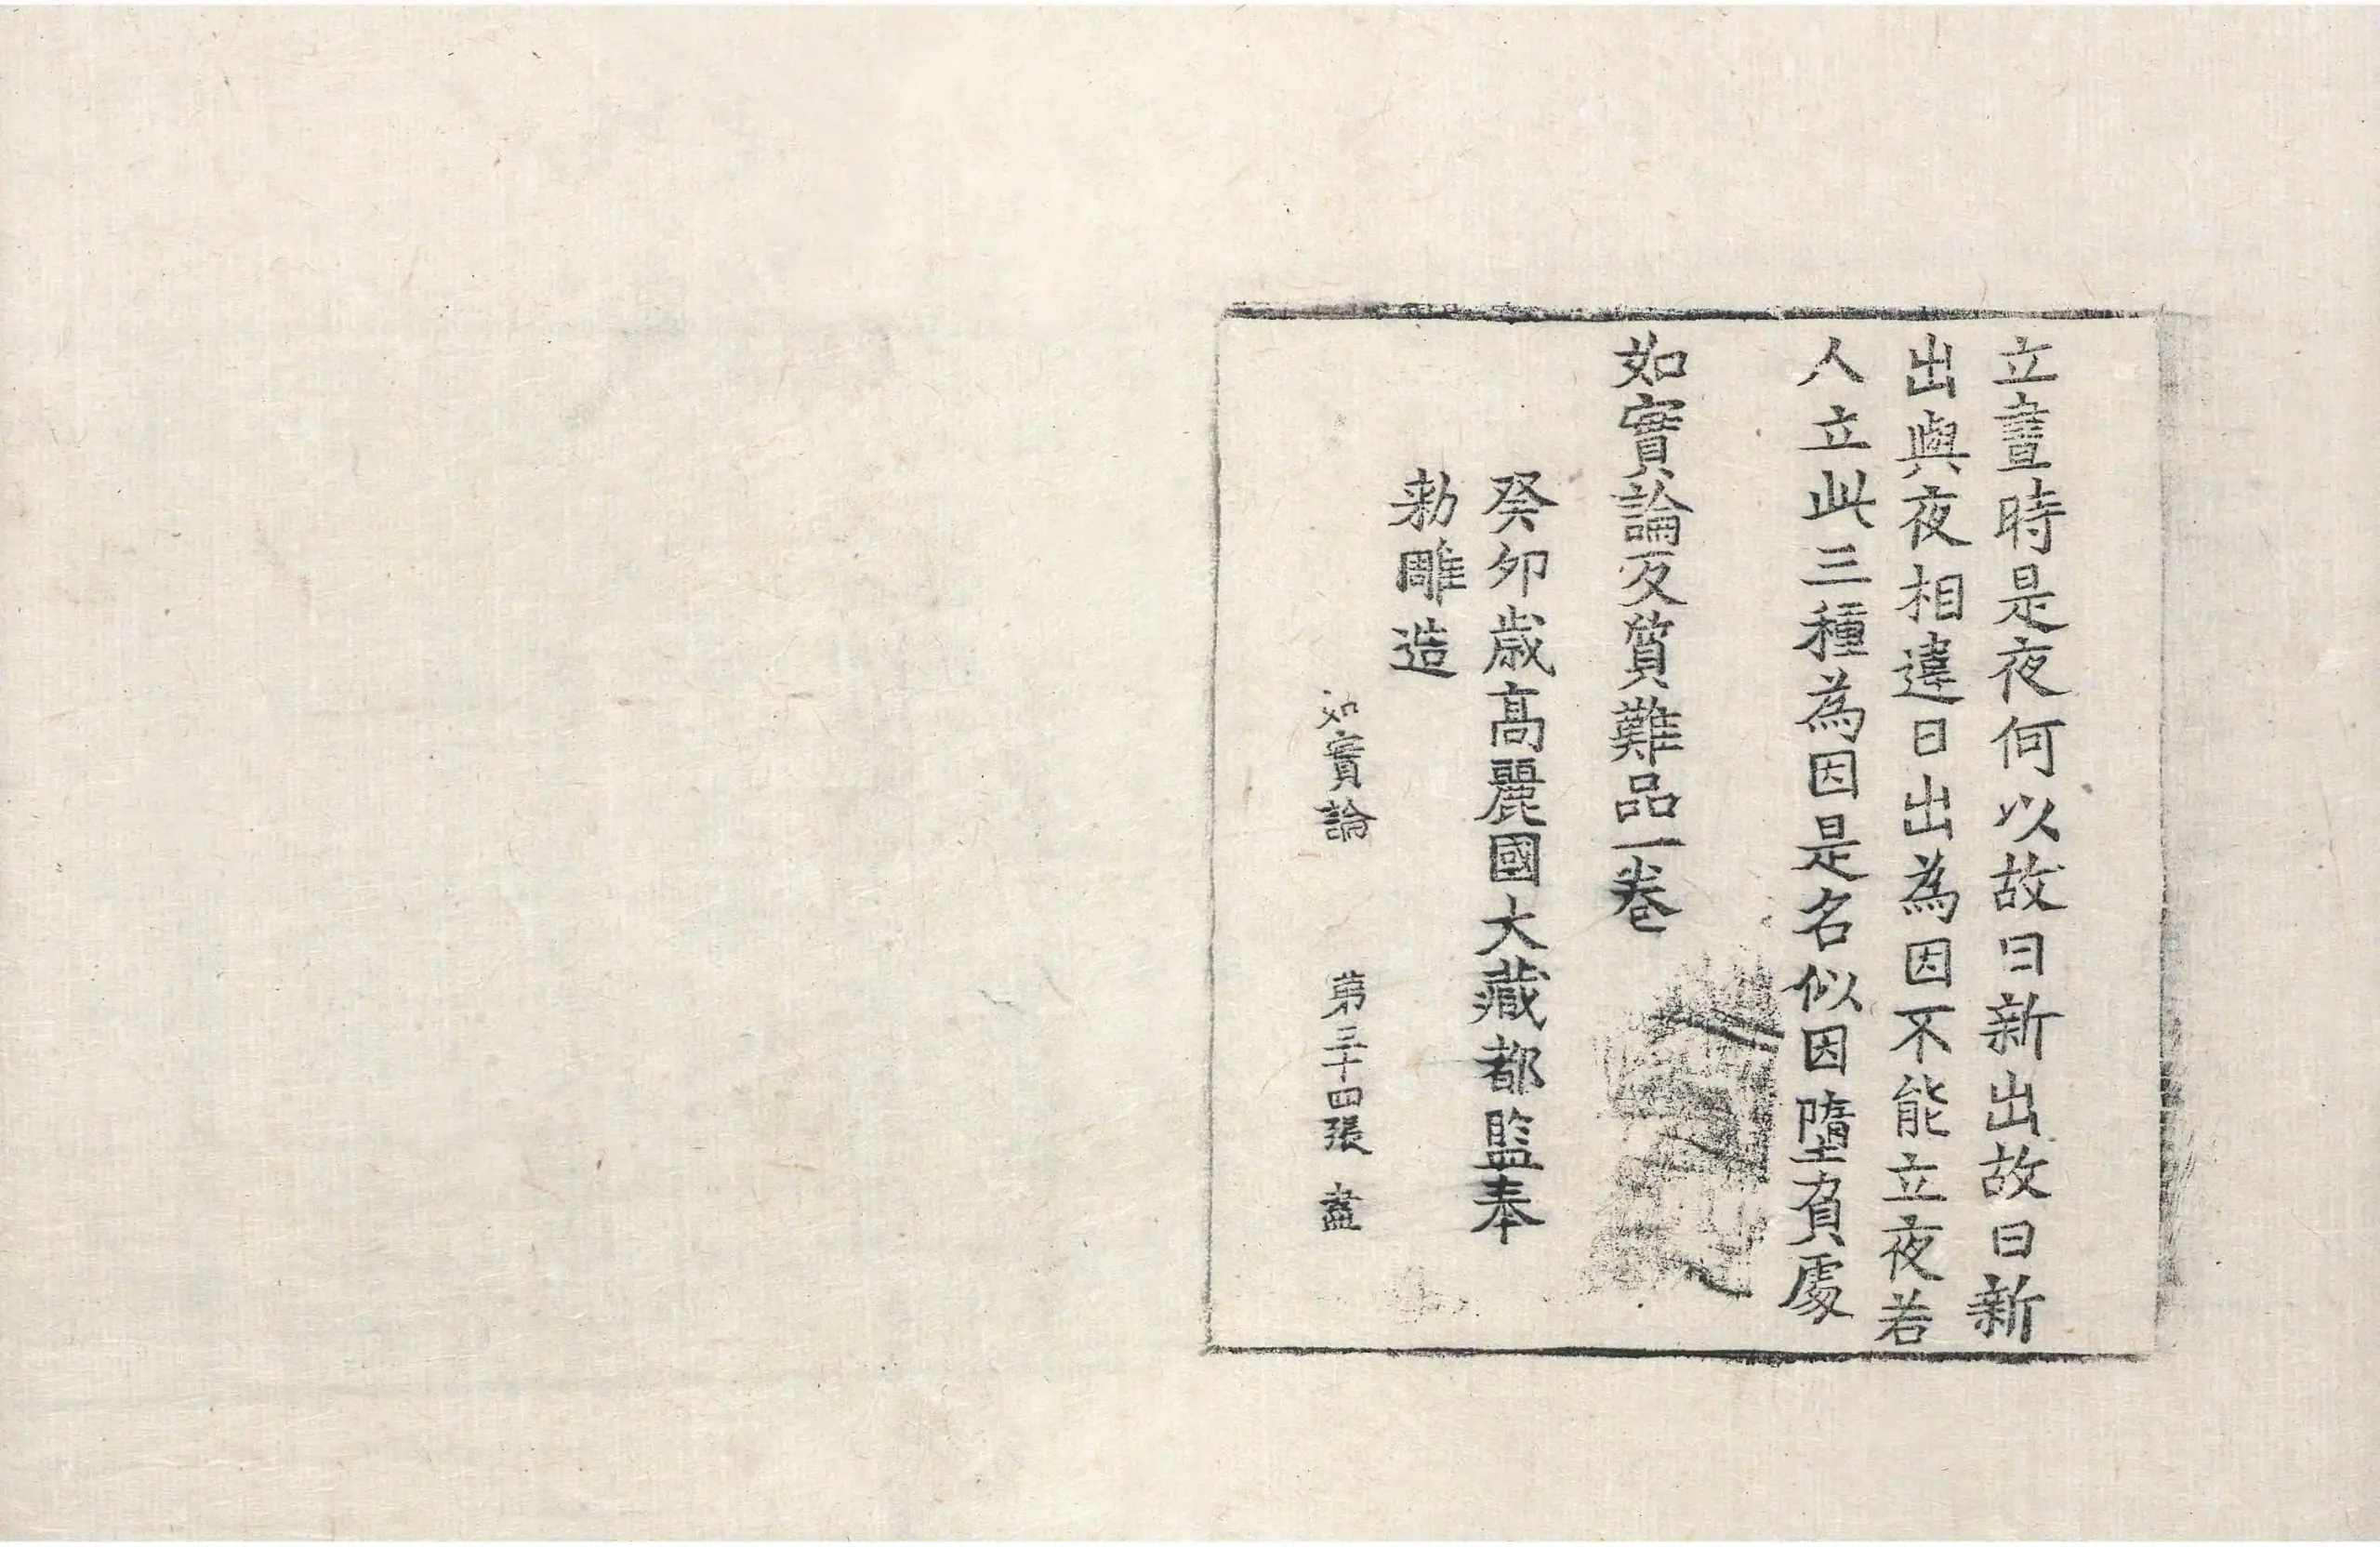 立晝時是夜何以故曰新出故日新
出與夜相違日出為因不能立夜若
人立此三種為因是名似因墮負處
如實論反質難品一卷
癸卯歲高麗國大藏都監奉
勅雕造
如實論 第三十四張 盡